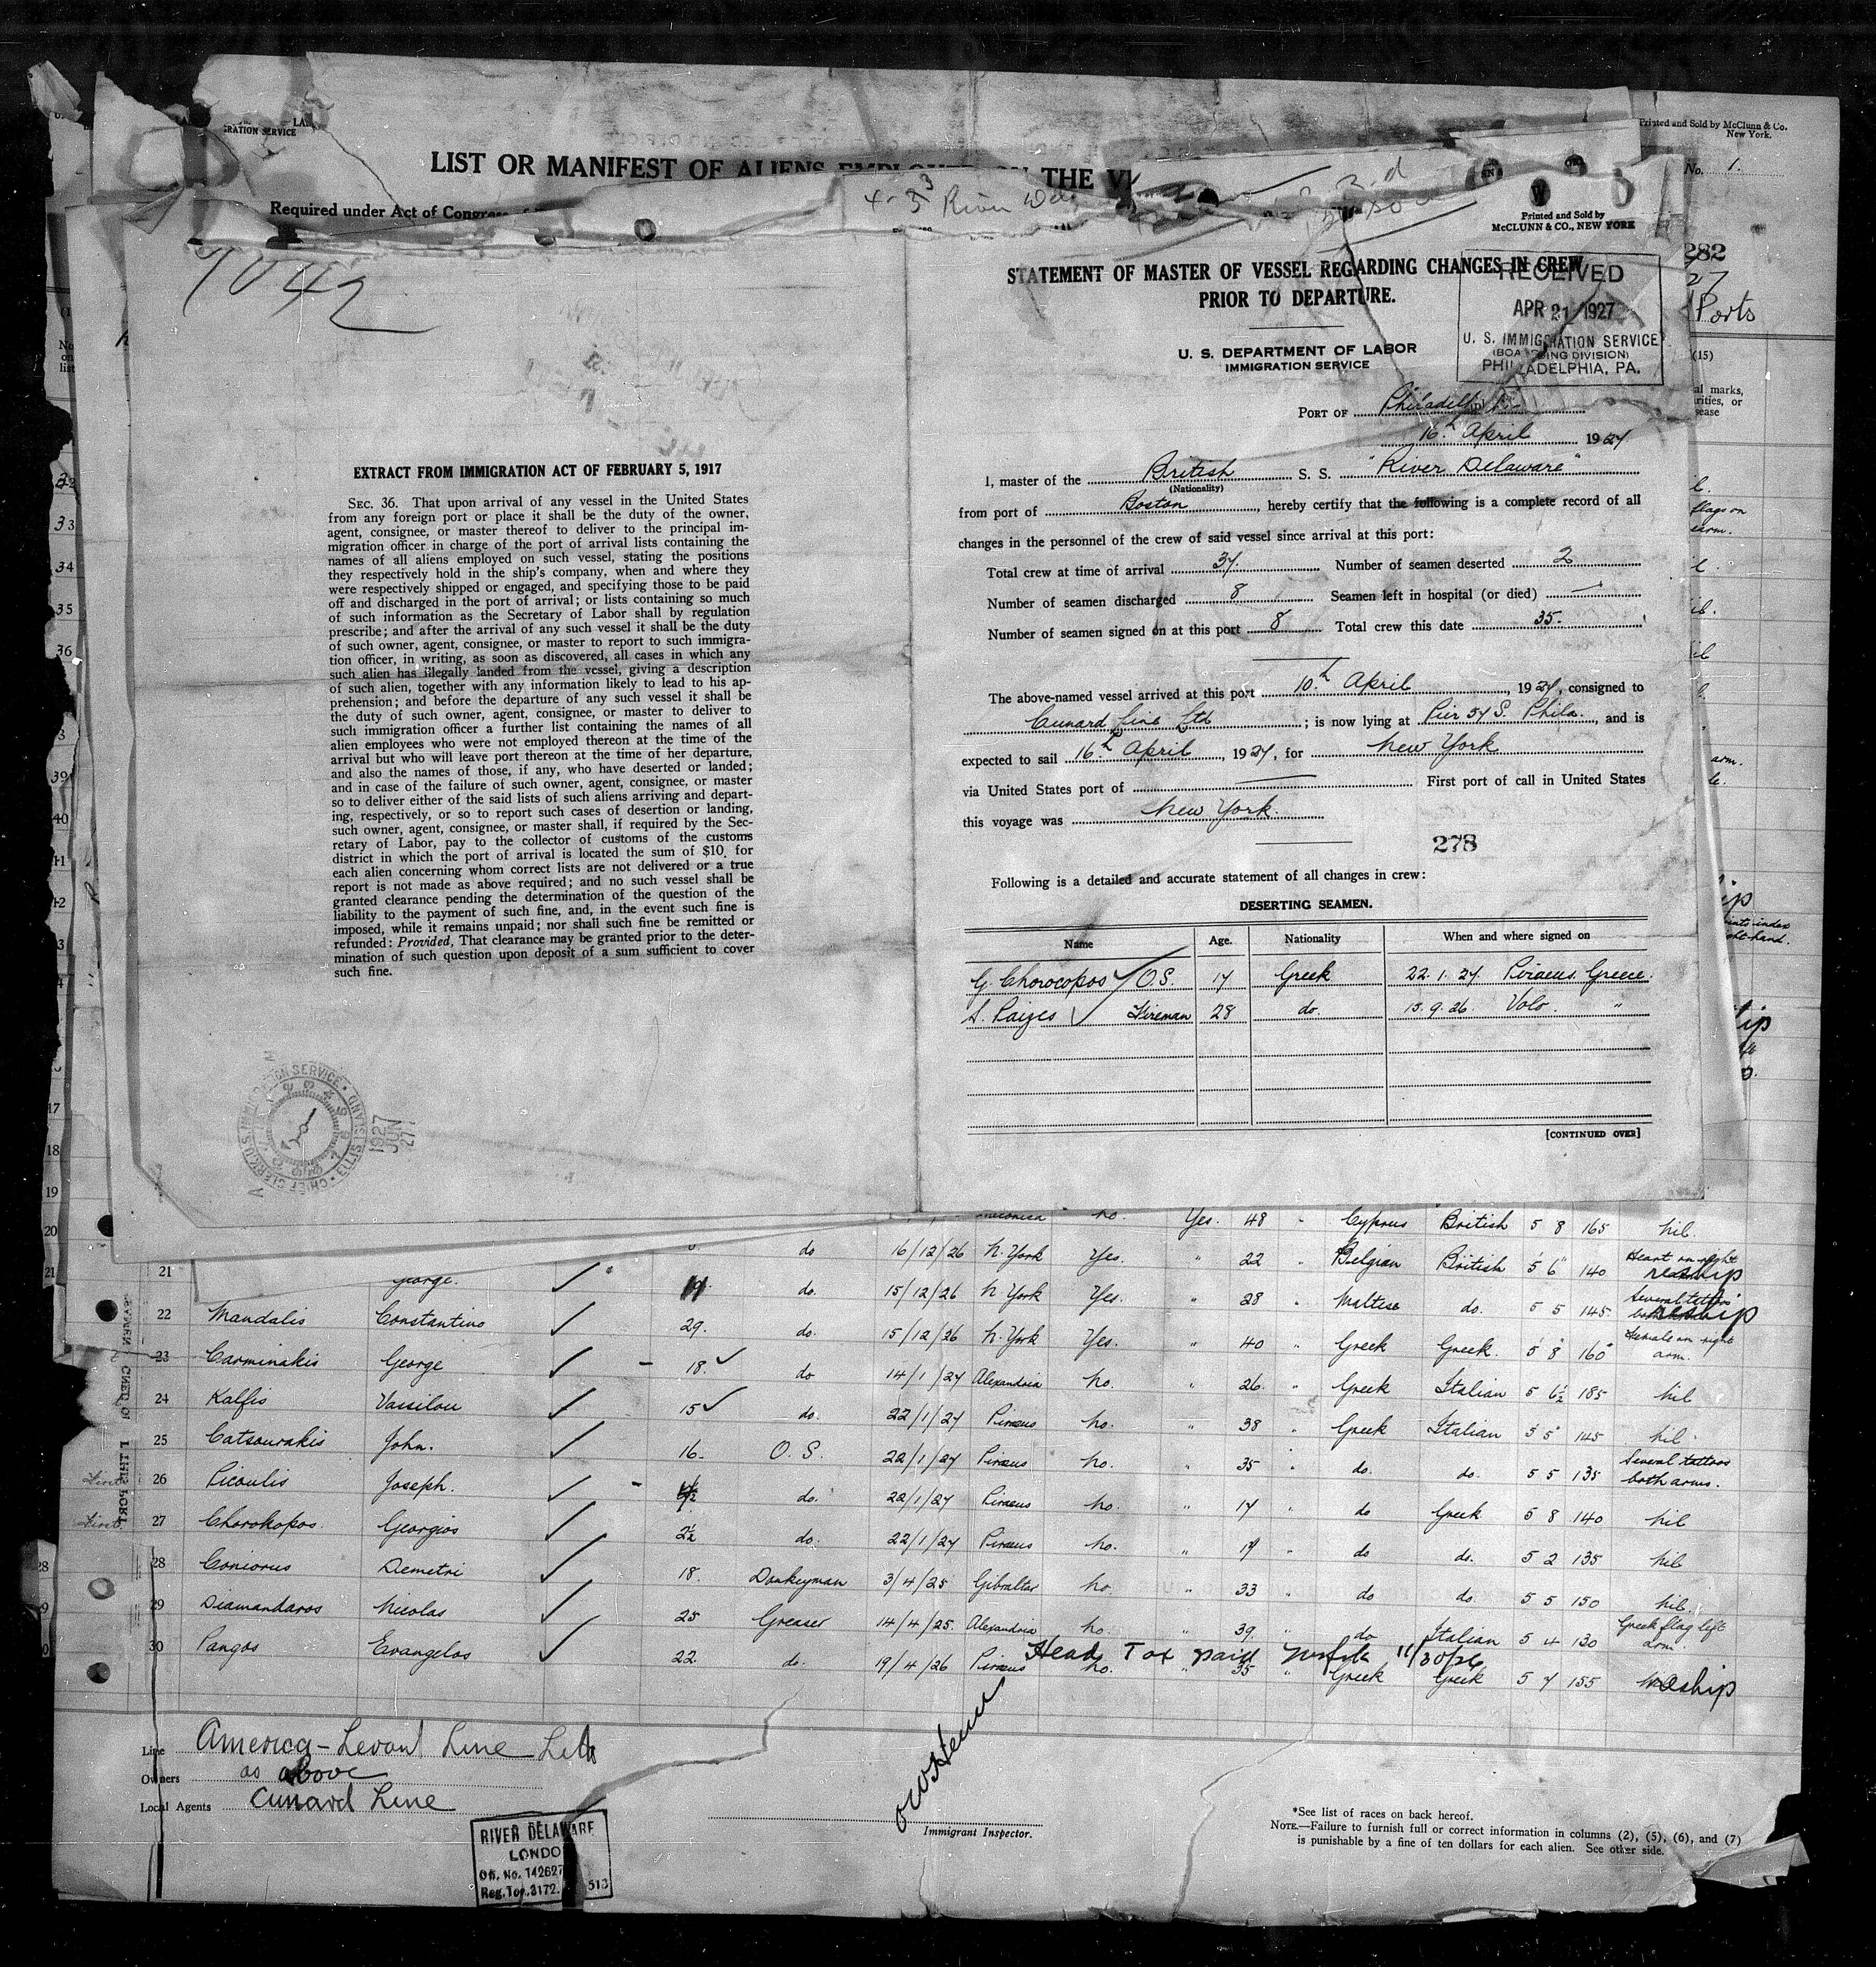 GRATION SERVICE
Printed and Sold by McClunn & Co.
New York.
LIST OR MANIFEST OF ALIENS EMPLOYED ON THE
No. 1.
Required under Act of Congress
4-3 River
Printed and Sold by
McCLUNN & CO., NEW YORK
282
27
Ports
(15)
al marks,
arities, or
sease
EXTRACT FROM IMMIGRATION ACT OF FEBRUARY 5, 1917
SEC. 36. That upon arrival of any vessel in the United States
from any foreign port or place it shall be the duty of the owner,
agent, consignee, or master thereof to deliver to the principal im-
migration officer in charge of the port of arrival lists containing the
names of all aliens employed on such vessel, stating the positions
they respectively hold in the ship's company, when and where they
were respectively shipped or engaged, and specifying those to be paid
off and discharged in the port of arrival; or lists containing so much
of such information as the Secretary of Labor shall by regulation
prescribe; and after the arrival of any such vessel it shall be the duty
of such owner, agent, consignee, or master to report to such immigra-
tion officer, in writing, as soon as discovered, all cases in which any
such alien has illegally landed from the vessel, giving a description
of such alien, together with any information likely to lead to his ap-
prehension; and before the departure of any such vessel it shall be
the duty of such owner, agent, consignee, or master to deliver to
such immigration officer a further list containing the names of all
alien employees who were not employed thereon at the time of the
arrival but who will leave port thereon at the time of her departure,
and also the names of those, if any, who have deserted or landed;
and in case of the failure of such owner, agent, consignee, or master
so to deliver either of the said lists of such aliens arriving and depart-
ing, respectively, or so to report such cases of desertion or landing,
such owner, agent, consignee, or master shall, if required by the Sec-
retary of Labor, pay to the collector of customs of the customs
district in which the port of arrival is located the sum of $10. for
each alien concerning whom correct lists are not delivered or a true
report is not made as above required; and no such vessel shall be
granted clearance pending the determination of the question of the
liability to the payment of such fine, and, in the event such fine is
imposed, while it remains unpaid; nor shall such fine be remitted or
refunded: Provided, That clearance may be granted prior to the deter-
mination of such question upon deposit of a sum sufficient to cover
such fine.
CHIEF CLERK U.S. IMMIGRATION SERVICE ELLIS ISLAND
1927 JUN 27
STATEMENT OF MASTER OF VESSEL REGARDING CHANGES IN CREW
PRIOR TO DEPARTURE.
RECEIVED
APR 21 1927
U. S. IMMIGRATION SERVICE
(BOARDING DIVISION)
PHILADELPHIA, PA.
U. S. DEPARTMENT OF LABOR
IMMIGRATION SERVICE
PORT OF Philadelphia
16th April 1927
I, master of the British S. S. "River Delaware"
(Nationality)
from port of Boston, hereby certify that the following is a complete record of all
changes in the personnel of the crew of said vessel since arrival at this port:
Total crew at time of arrival 37. Number of seamen deserted 2
Number of seamen discharged 8 Seamen left in hospital (or died) —
Number of seamen signed on at this port 8 Total crew this date 35.
The above-named vessel arrived at this port 10th April, 1927, consigned to
Cunard Line Ltd; is now lying at Pier 57 S. Phila., and is
expected to sail 16th April, 1927, for New York
via United States port of — First port of call in United States
this voyage was New York.
278
Following is a detailed and accurate statement of all changes in crew:
DESERTING SEAMEN.
Name Age. Nationality When and where signed on
G. Chorocopos O.S. 17 Greek 22.1.27 Piraeus. Greece.
S. Paizes Fireman 28 do. 13.9.26 Volo. "
[CONTINUED OVER]
20 no. Yes. 48 " Cyprus British 5 8 165 nil.
21 do 16/12/26 N. York Yes. " 22 Belgian British 5 6 140 Heart on right reaship
George. 19 do. 15/12/26 N York Yes. " 28 " Maltese do. 5 5 145 Several tattoos
22 Mandalis Constantino 29. do. 15/12/26 N. York Yes. " 40 " Greek Greek. 5 8 160 Female on right arm.
23 Carminakis George 18. do 14/1/27 Alexandria no. " 26 " Greek Italian 5 6½ 185 nil
24 Kalfis Vassilou 15 do. 22/1/27 Piraeus no. " 38 " Greek Italian 5 5 145 nil
25 Catsourakis John. 16 O. S. 22/1/27 Piraeus no. " 35 " do. do. 5 5 135 Several tattoos both arms.
26 Picoulis Joseph. do. 22/1/27 Piraeus no. " 17 " do Greek 5 8 140 nil
27 Chorokopos. Georgios 2½ do. 22/1/27 Piraeus no. " 19 " do do. 5 2 135 nil
28 Coniorus Demetri 18. Donkeyman 3/4/25 Gibraltar no. " 33 " do do. 5 5 150 nil.
29 Diamandaros Nicolas 25 Greaser 14/4/25. Alexandria no. " 39 " do Italian 5 4 130 Greek flag left arm.
30 Pangos Evangelos 22 do. 19/4/26 Piraeus no. " 35 " Greek Greek 5 7 155 reaship
Head Tax paid Norfolk 11/30/26
Line America-Levant Line Ltd
Owners as above
Local Agents Cunard Line
RIVER DELAWARE
LONDO
Off. No. 142627
Reg. Ton. 3172. 513
Immigrant Inspector.
*See list of races on back hereof.
NOTE.—Failure to furnish full or correct information in columns (2), (5), (6), and (7)
is punishable by a fine of ten dollars for each alien. See other side.